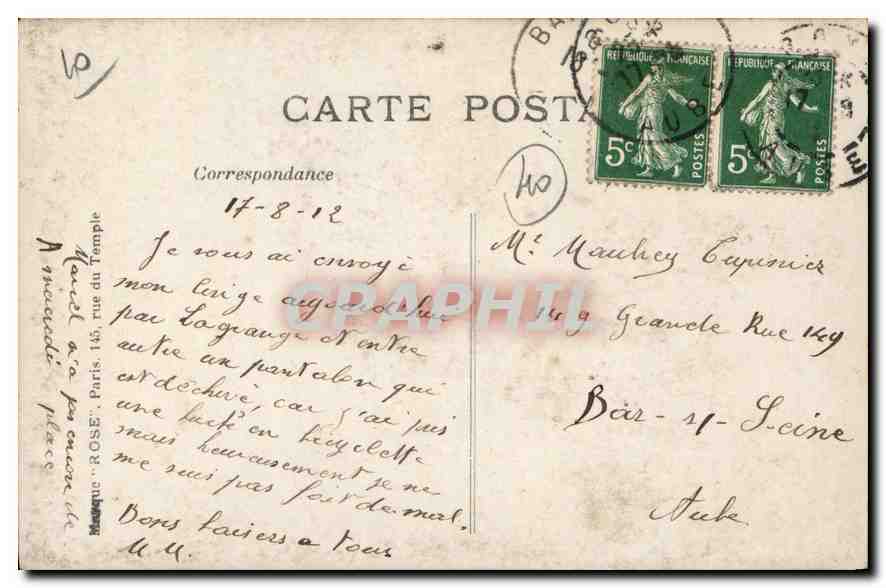 40
CARTE POSTA
BA
AUB
REPUBLIQUE FRANÇAISE
5c
POSTES
REPUBLIQUE FRANÇAISE
5c
POSTES
Correspondance
40
17-8-12
Je vous ai envoyé
mon linge aujourd'hui
par Lagrange et entre
autre un pantalon qui
est déchiré, car j'ai pris
une buche en bicyclette
mais heureusement je ne
me suis pas fait de mal.
Bons baisers a tous
M. M.
Mr Mauhey Tupinier
149 Grande Rue 149
Bar-s/-Seine
Aube
Marque "ROSE". Paris. 145, rue du Temple
Marcel n'a pas encore de
place
A mercredi
APHIL